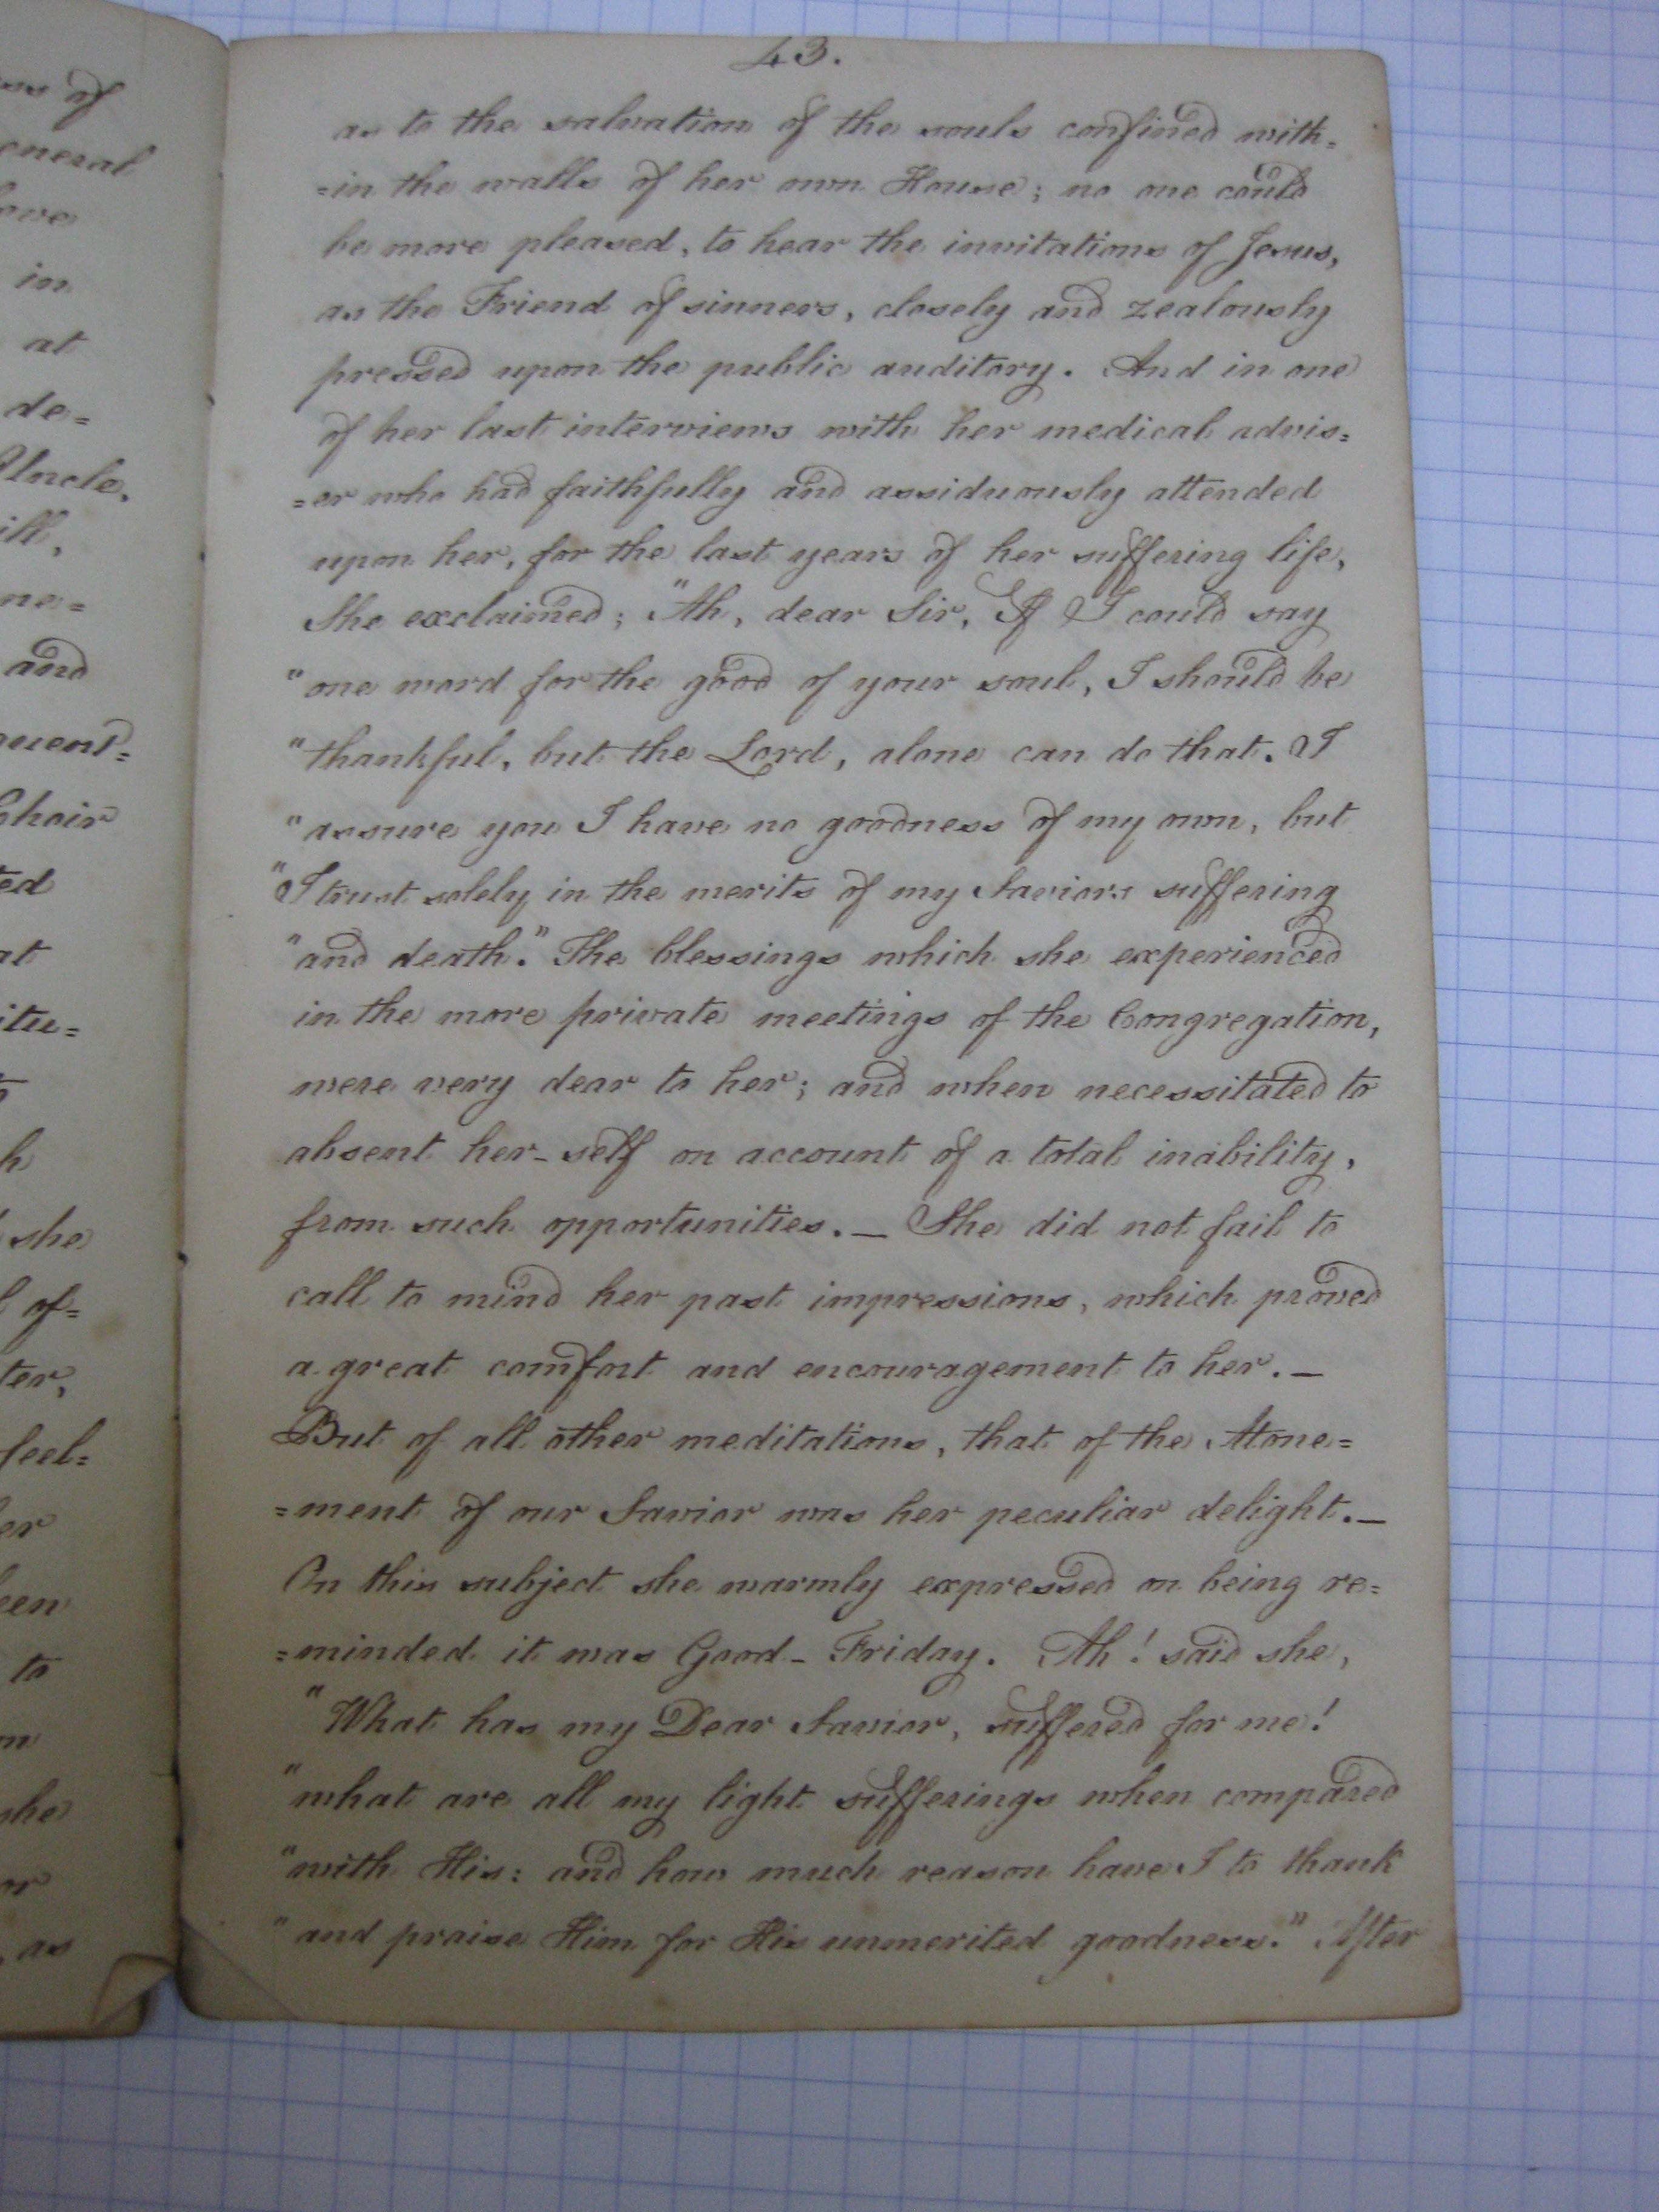 43.
as to the salvation of the souls confined with=
=in the walls of her own House; no one could
be more pleased, to hear the invitations of Jesus,
as the Friend of sinners, closely and zealously
pressed upon the public auditory. And in one
of her last interviews with her medical advis=
=er who had faithfully and assiduously attended
upon her, for the last years of her suffering life,
She exclaimed; "Ah, dear Sir, If I could say
"one word for the good of your soul, I should be
"thankful, but the Lord, alone can do that. I
"assure you I have no goodness of my own, but
"I trust solely in the merits of my Saviors suffering
"and death." The blessings which she experienced
in the more private meetings of the Congregation,
were very dear to her; and when necessitated to
absent her-self on account of a total inability,
from such opportunities._ She did not fail to
call to mind her past impressions, which proved
a great comfort and encouragement to her._
But of all other meditations, that of the Atone=
=ment of our Savior was her peculiar delight._
On this subject she warmly expressed on being re=
=minded it was Good-Friday. Ah! said she,
"What has my Dear Savior, suffered for me!
"what are all my light sufferings when compared
"with His: and how much reason have I to thank
"and praise Him for His unmerited goodness." After
of
in
at
de=
Uncle,
and
she
of=
to
as